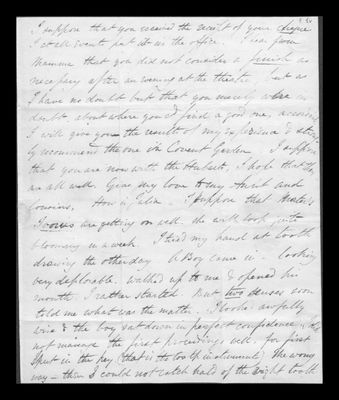 I suppose that you received the receipt of your cheque
I at all events put it in the office. I hear from
Mamma that you did not consider a finish as
necessary after an evening at the theatre. But as
I have no doubt but that you merely were in
doubt, about where you'd find a good one,
I will give you the result of my experience &
ly recommend the one in Covent Garden. I suppose
that you are now with the Huberts, I hope that they
are all well. Give my love to my Aunt and
Cousins. How is Julia. I suppose that
are getting on well. She will look quite
blooming in a week. I tried my hand at tooth
drawing the other day. A Boy came in looking
very deplorable, walked up to me & opened his
mouth. I rather started. But two seconds soon
told me what was the matter. I looked awfully
wise & the boy sat down in perfect confidence. I did
not manage the first proceedings well, for first
I put in the key (that is the tooth instrument) the wrong
way – then I could not catch hold of the right tooth